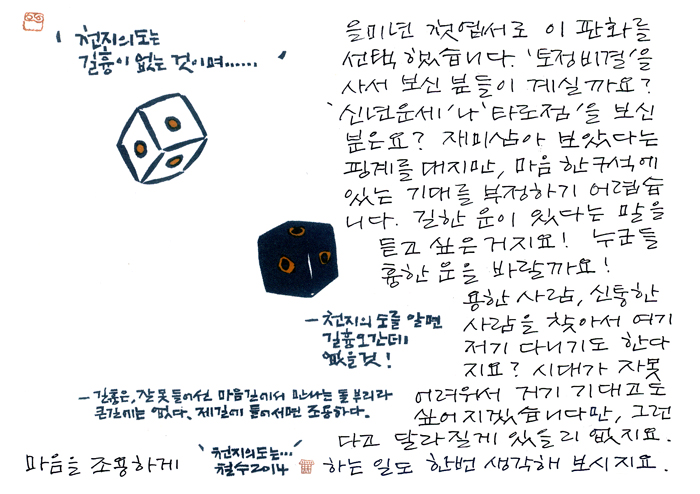 '천지의도는
길흉이 없는 것이며......'
— 천지의 도를 알면
길흉 오간데
없을 것!
— 길흉은, 잘못 들어선 마음길에서 만나는 돌부리라
큰길에는 없다. 제길에 들어서면 조용하다.
'천지의도는...'
철수 2014
을미년 첫엽서로 이 판화를
선택했습니다. '토정비결'을
사서 보신 분들이 계실까요?
'신년운세'나 '타로점'을 보신
분은요? 재미삼아 보았다는
핑계를 대지만, 마음 한구석에
있는 기대를 부정하기 어렵습
니다. 길한 운이 있다는 말을
듣고 싶은거지요! 누군들
흉한 운을 바랄까요!
용한 사람, 신통한
사람을 찾아서 여기
저기 다니기도 한다
지요? 시대가 자못
어려워서 거기 기대고도
싶어지겠습니다만, 그런
다고 달라질게 있을리 없지요.
마음을 조용하게 하는 일도 한번 생각해 보시지요.